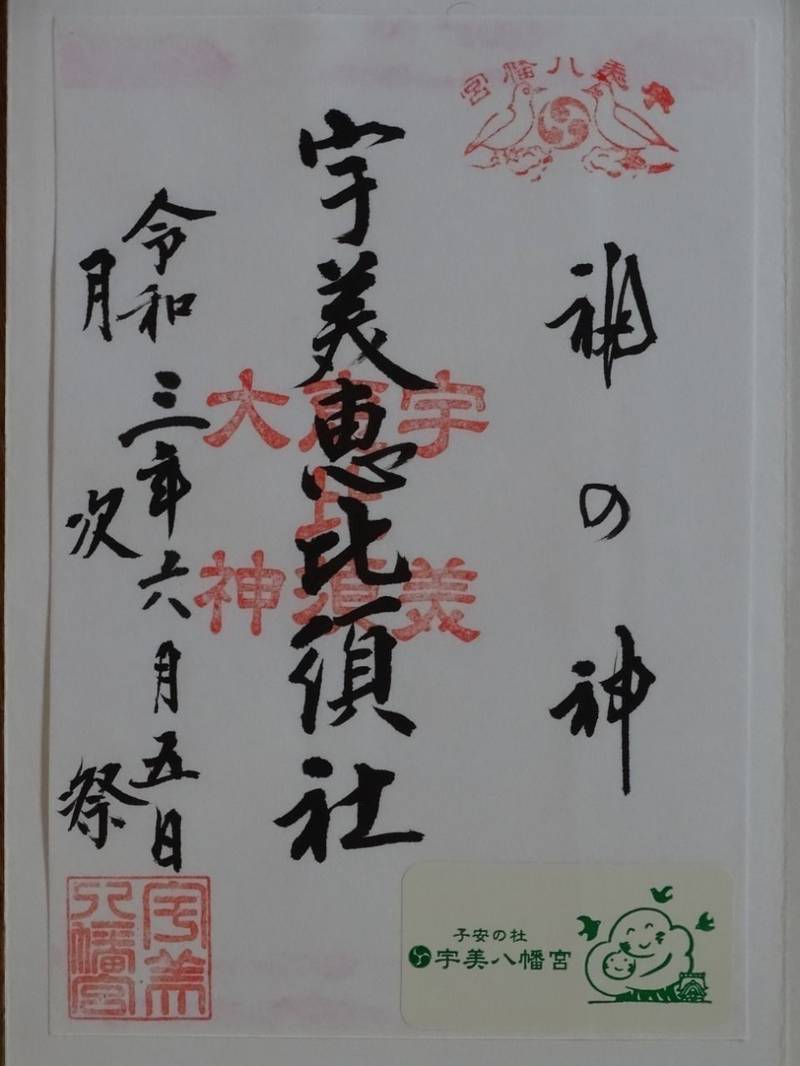 宇美八幡宮
福の神
宇美恵比須社
宇美
恵比須
大神
令和三年六月五日
月次祭
宇美
八幡宮
子安の杜
宇美八幡宮